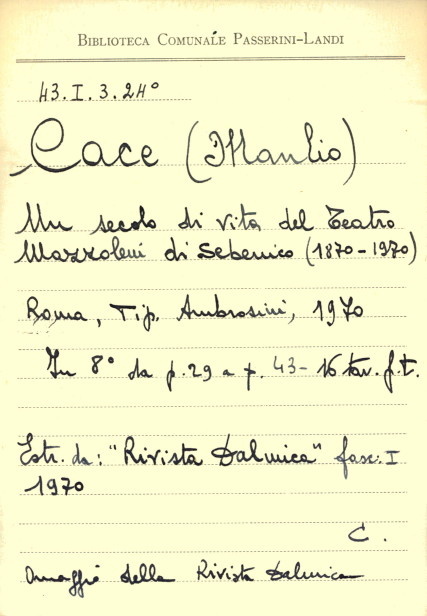 BIBLIOTECA COMUNALE PASSERINI-LANDI
43.I.3.24°
Cace (Manlio)
Un secolo di vita del Teatro
Mazzoleni di Sebenico (1870-1970)
Roma, Tip. Ambrosini, 1970
In 8° da p.29 a p. 43- 16 tav. f.t.
Estr. da: "Rivista Dalmica" fasc. I
1970
C.
Omaggio della Rivista Dalmica